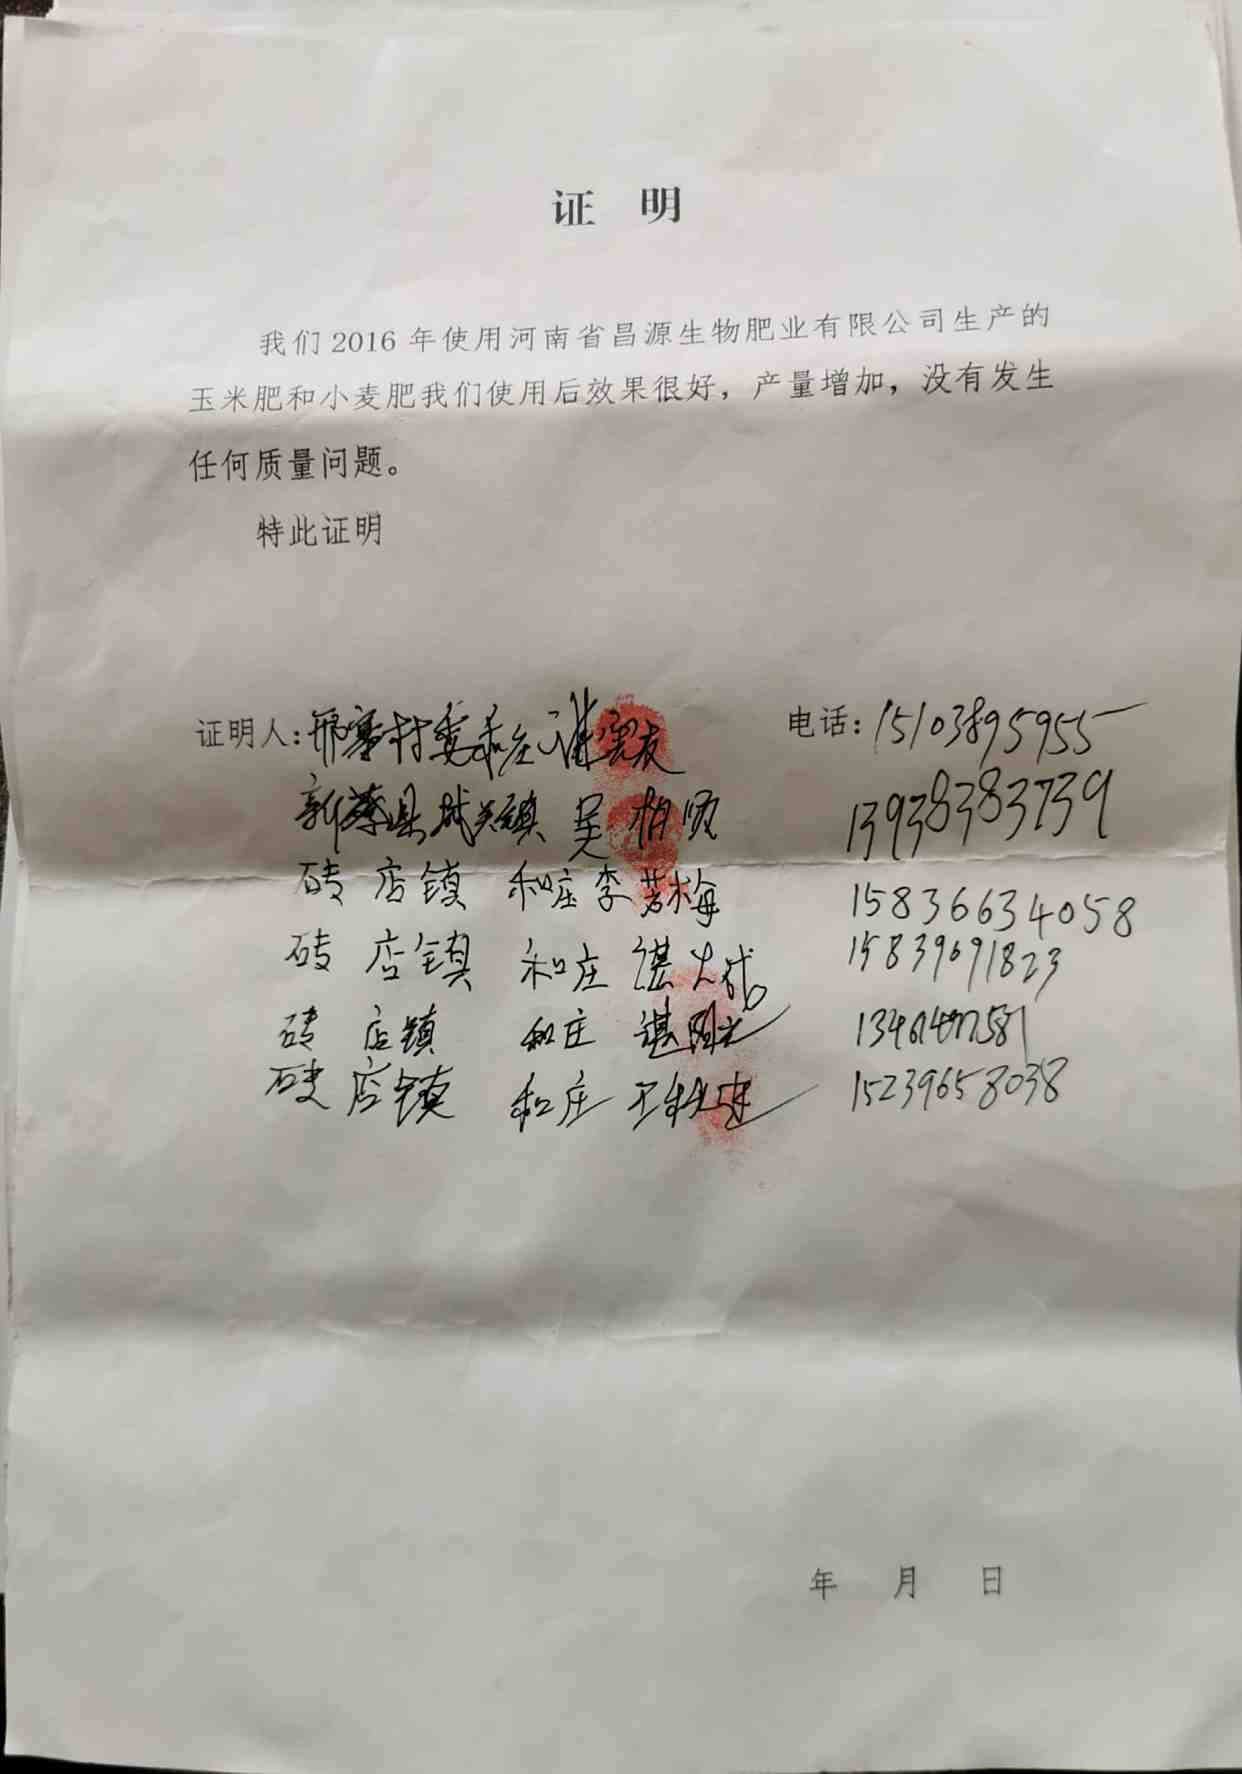 证 明
我们2016年使用河南省昌源生物肥业有限公司生产的
玉米肥和小麦肥我们使用后效果很好，产量增加，没有发生
任何质量问题。
特此证明
证明人：邢寨村委和庄 友 电话：15103895955
新蔡县城关镇 吴 13938383739
砖店镇 和庄 李芳梅 15836634058
砖店镇 和庄 谌 15839691823
砖店镇 和庄 谌阳
砖店镇 和庄 王 建 15239658038
年 月 日